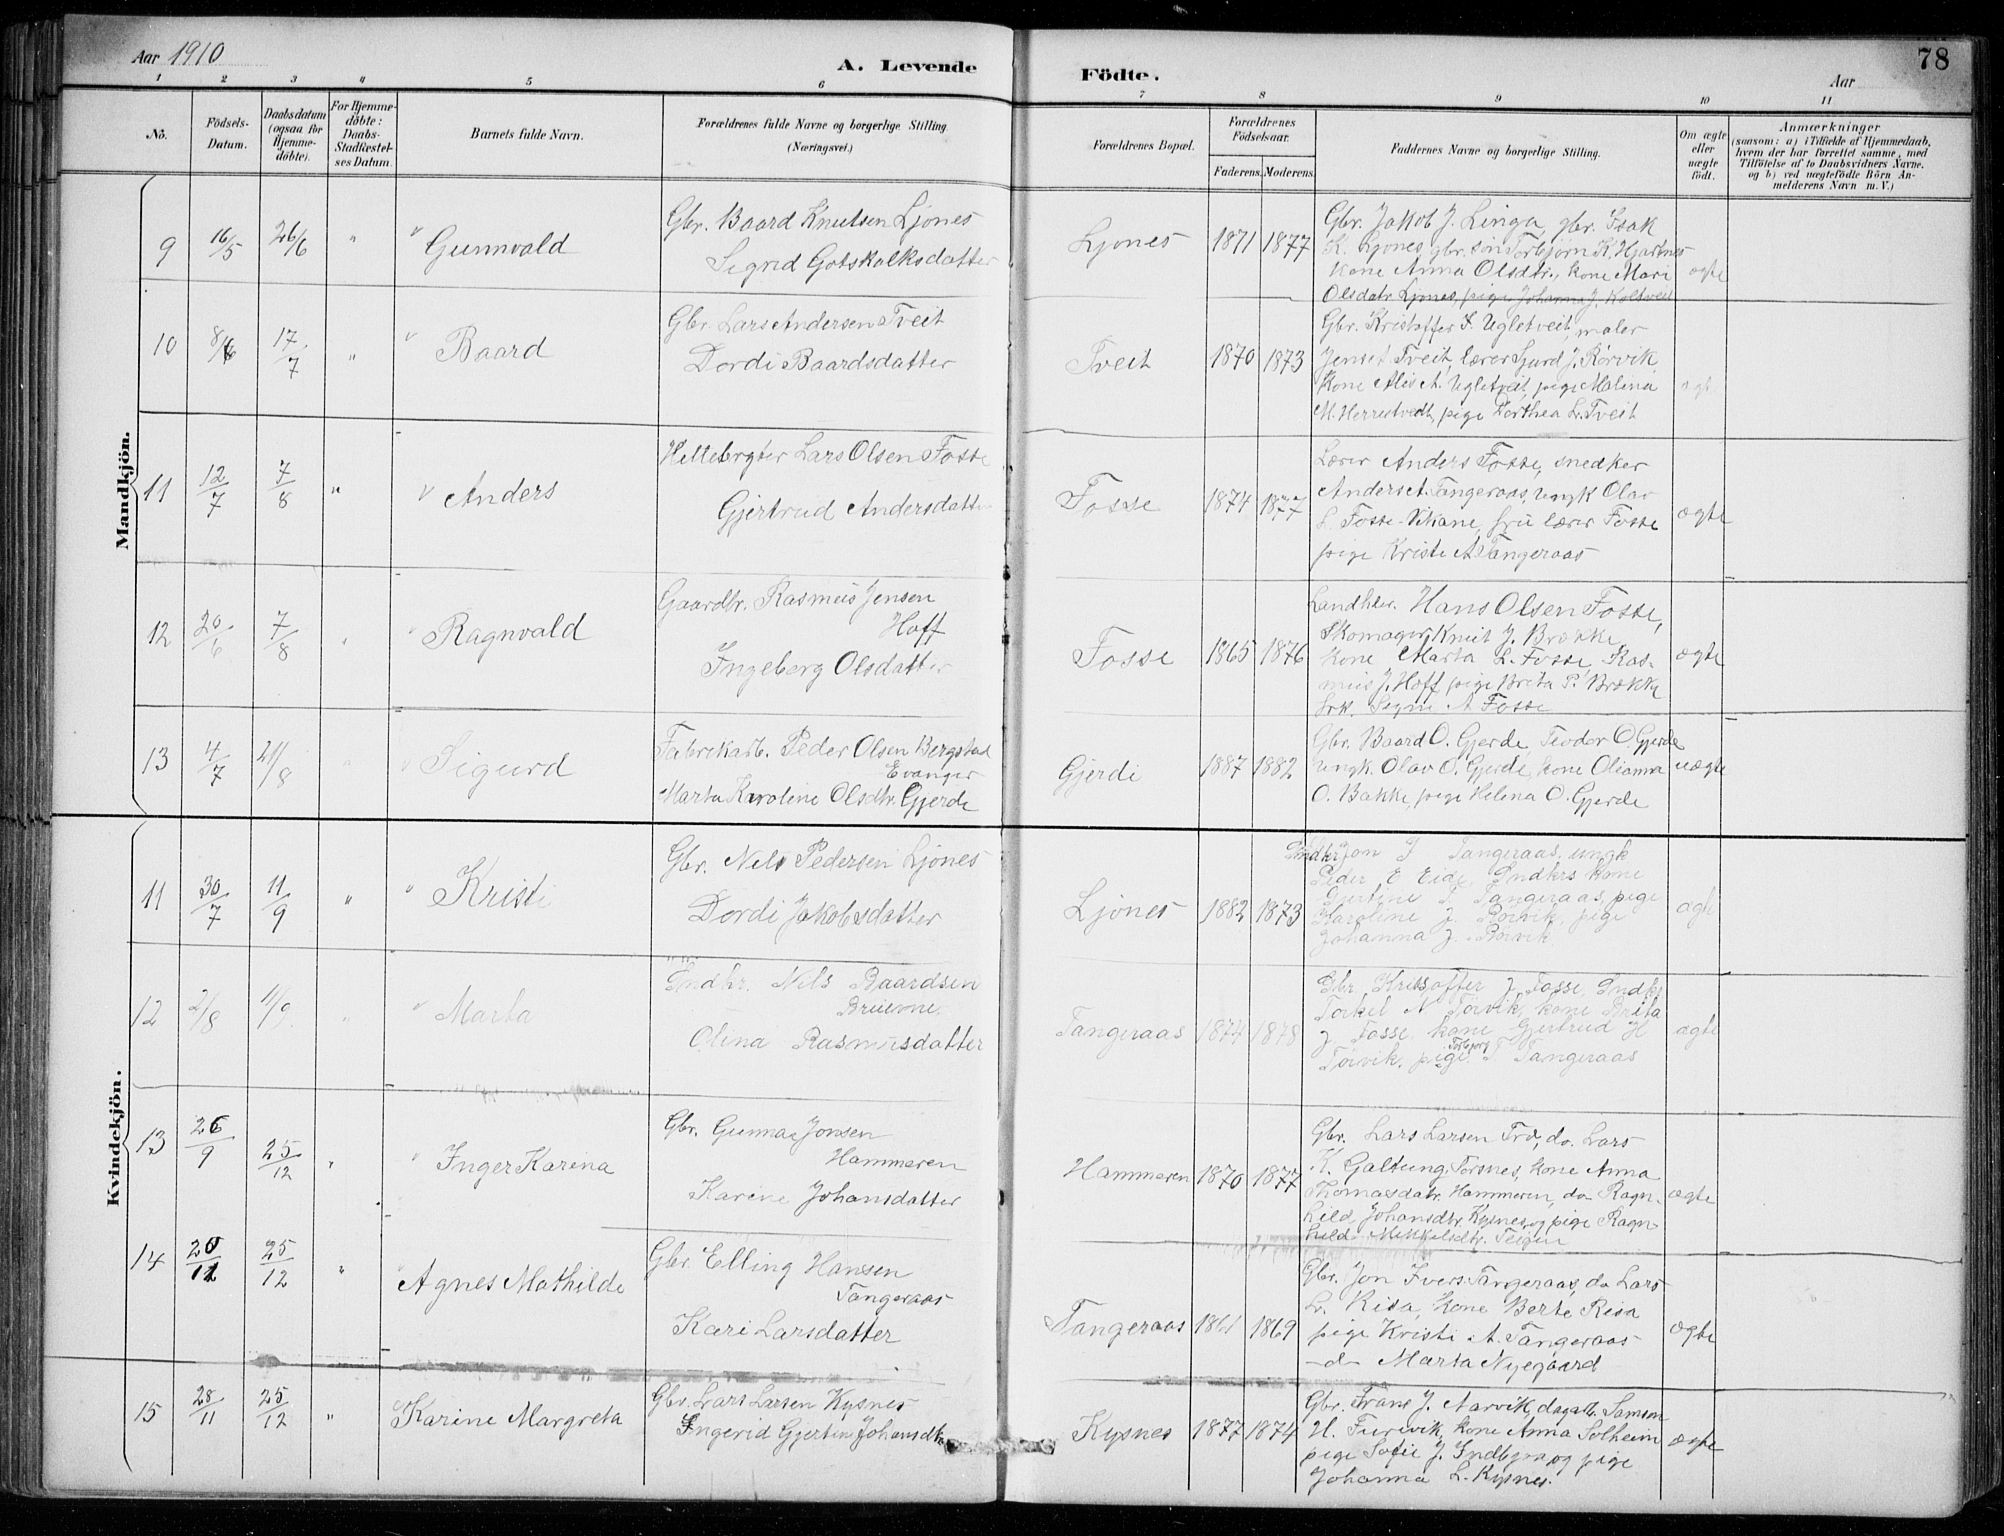 Aar 1910
A. Levende Födte.
Aar
78
1 2 3 4 5 6 7 8 9 10 11
No.
Födsels-Datum.
Daabsdatum (ogsaa for Hjemme-døbte).
For Hjemme-døbte: Daabs-Stadfæstel-ses Datum.
Barnets fulde Navn.
Forældrenes fulde Navne og borgerlige Stilling. (Næringsvei.)
Forældrenes Bopæl.
Forældrenes Födselsaar.
Faderens. Moderens.
Faddernes Navne og borgerlige Stilling.
Om ægte eller uægte födt.
Anmærkninger
(saasom: a) i Tilfælde af Hjemmedaab,
hvem der har forrettet samme, med
Tilföielse af to Daabsvidners Navne,
og b) ved uægtefödte Börn An-
melderens Navn m. V.)
Mandkjön.
9 16/5 26/6 " " Gunnvald
Gbr. Baard Knutsen Ljones
Sigrid Gotskalksdatter
Ljones 1871 1877
Gbr. Jakob J. Linga, gbr. Isak
K. Ljones, gbr. søn Torbjørn K. Hjartnes
kone Anna Olsdtr., kone Mari
Olsdatr. Ljones, pige Johanna J. Koltveit
ægte
10 8/6 17/7 " " Baard
Gbr. Lars Andersen Tveit
Dordi Baardsdatter
Tveit 1870 1873
Gbr. Kristoffer S. Ugletveit, maler
Jens T. Tveit, lærer Sjurd J. Rørvik,
kone Alis A. Ugletveit, pige Malina
M. Herrestvedt, pige Dorthea L. Tveit
ægte
11 12/7 7/8 " " Anders
Lars Olsen Fosse
Gjertrud Andersdatter
Fosse 1874 1877
Lærer Anders Fosse, snedker
Anders A. Tangeraas, ungk Olav
L. Fosse-Vikane, fru lærer Fosse
pige Kristi A. Tangeraas
ægte
12 20/6 7/8 " " Ragnvald
Gaardbr. Rasmus Jensen
Hoff
Ingeborg Olsdatter
Fosse 1865 1876
Landhdr. Hans Olsen Fosse,
Skomager Knut J. Brække,
kone Marta L. Fosse, Ras-
mus J. Hoff, pige Brita P. Brække
frk. Signe A Fosse
ægte
13 4/7 21/8 " " Sigurd
Fabrikarb. Peder Olsen Bergstad
Evanger
Marta Karoline Olsdtr. Gjerde
Gjerdi 1887 1882
Gbr. Baard O. Gjerde, Teodor O Gjerde
ungk. Olav O. Gjerde, kone Olianna
O. Bakke, pige Helena O. Gjerde
uægte
Kvindekjön.
11 30/7 11/9 " " Kristi
Gbr. Nels Pedersen Ljones
Dordi Jakobsdatter
Ljones 1882 1873
Indhr Jon I Tangeraas, ungk
Peder E Eide, Indhrs kone
Gjertine T Tangeraas, pige
Karoline J. Rørvik, pige
Johanna J. Rørvik
ægte
12 2/8 11/9 " " Marta
Indhr. Nils Baardsen
Bruseine
Olina Rasmusdatter
Tangeraas 1874 1878
Gbr Kristoffer J Fosse, Indhr
Torkel N Torvik, kone Brita
J Fosse kone Gjertrud H
Torvik, pige Torbjorg T Tangeraas
ægte
13 26/9 25/12 " " Inger Karina
Gbr. Gunnar Jonsen
Hammeren
Karine Johansdatter
Hammeren 1870 1877
Gbr. Lars Larsen Tro, do. Lars
K. Galtung, Torsnes, kone Anna
Thomasdatr. Hammeren, do Ragn-
hild Johansdtr. Kysnes, og pige Ragn-
hild Mikkelsdtr. Teigen
ægte
14 20/11 25/12 " Agnes Mathilde
Gbr. Elling Hansen
Tangeraas
Kari Larsdatter
Tangeraas 1861 1869
Gbr. Jon Ivers. Tangeraas, do Lars
L. Risa, kone Berte Risa
pige Kristi A. Tangeraas
-d- Marta Nyegaard
ægte
15 28/11 25/12 " " Karine Margreta
Gbr. Lars Larsen Kysnes
Ingerid Gjertin Johansdtr
Kysnes 1877 1874
Gbr. Frans J. Aarvik, dagarb. Samson
H. Furevik, kone Anna Solheim
pige Sofie J. Indbjoa og pige
Johanna L. Kysnes.
ægte